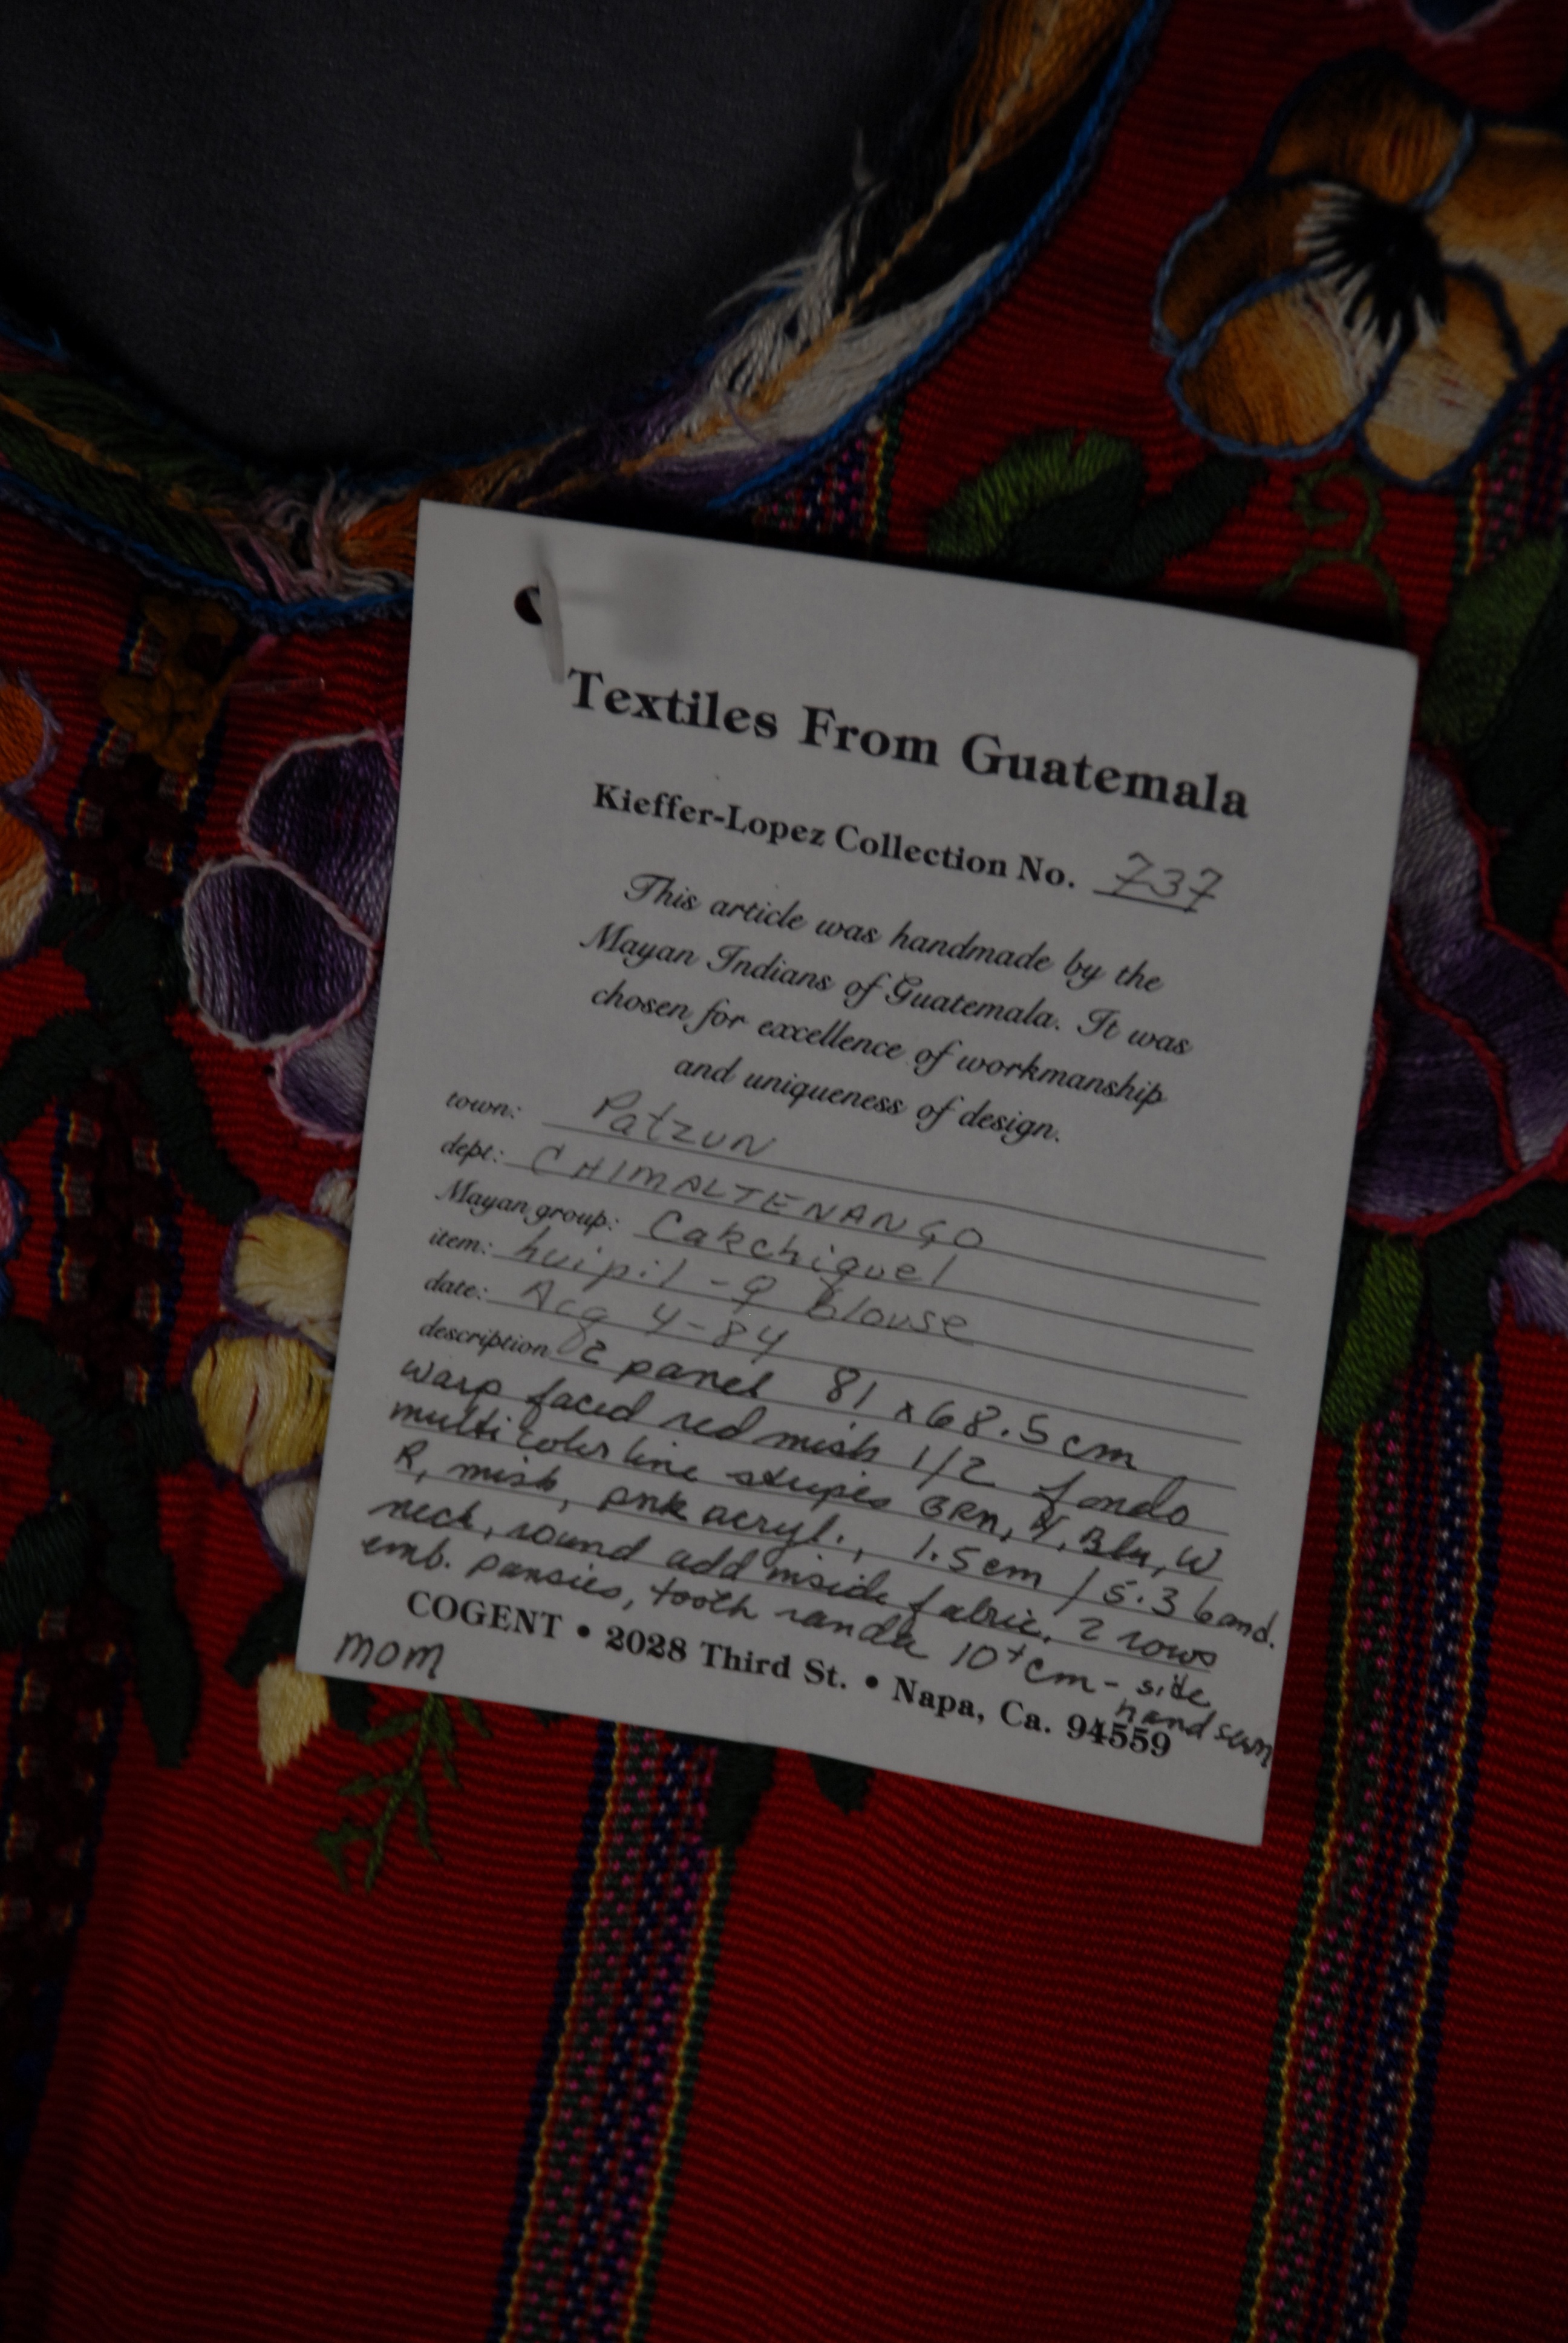 Textiles From Guatemala
Kieffer-Lopez Collection No. 737
This article was handmade by the
Mayan Indians of Guatemala. It was
chosen for excellence of workmanship
and uniqueness of design.
town: Patzun
dept: CHIMALTENANGO
Mayan group: Cakchiquel
item: huipil - ♀ blouse
date: Acq 4-84
description 2 panel 81 x 68.5 cm
warp faced red mish 1/2 fondo
multi color line stripes BRn, Y, Blu, W
R, mish, pnk acryl., 1.5 cm / 5.3 band.
neck, round add inside fabric. 2 rows
emb. pansies, tooth randa 10+ cm - side
hand sewn
COGENT • 2028 Third St. • Napa, Ca. 94559
mom